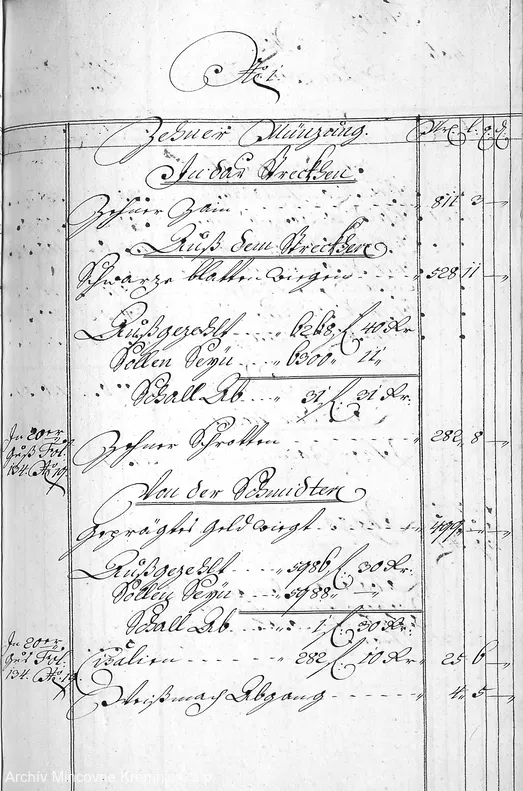 No: 1.
Zehner Münzung. Mr: l. q. d.
In das Streckhen
Zehner Zain 811 3
Auß dem Streckhen
Schwarze blatten wiegen 528 11
Außgezehlt 6268 f: 40 Kr
Sollen Seyn 6300 11
Schall Ab 31 f: 31 Kr:
In 20er
Guß Fol:
134. No:
Zehner Schrotten 282 8
Von der Schmidten
Geprägtes Geld wiegt 499
Außgezehlt 5986 f: 30 Kr.
Sollen Seyn 5988
Schall Ab 1 f: 30 Kr:
In 20er
Guß Fol:
134. No:
Cisalien 282 f: 10 Kr 25 6
Weißmach Abgang 4 5
Archív Mincovne Kremnica, š.p.